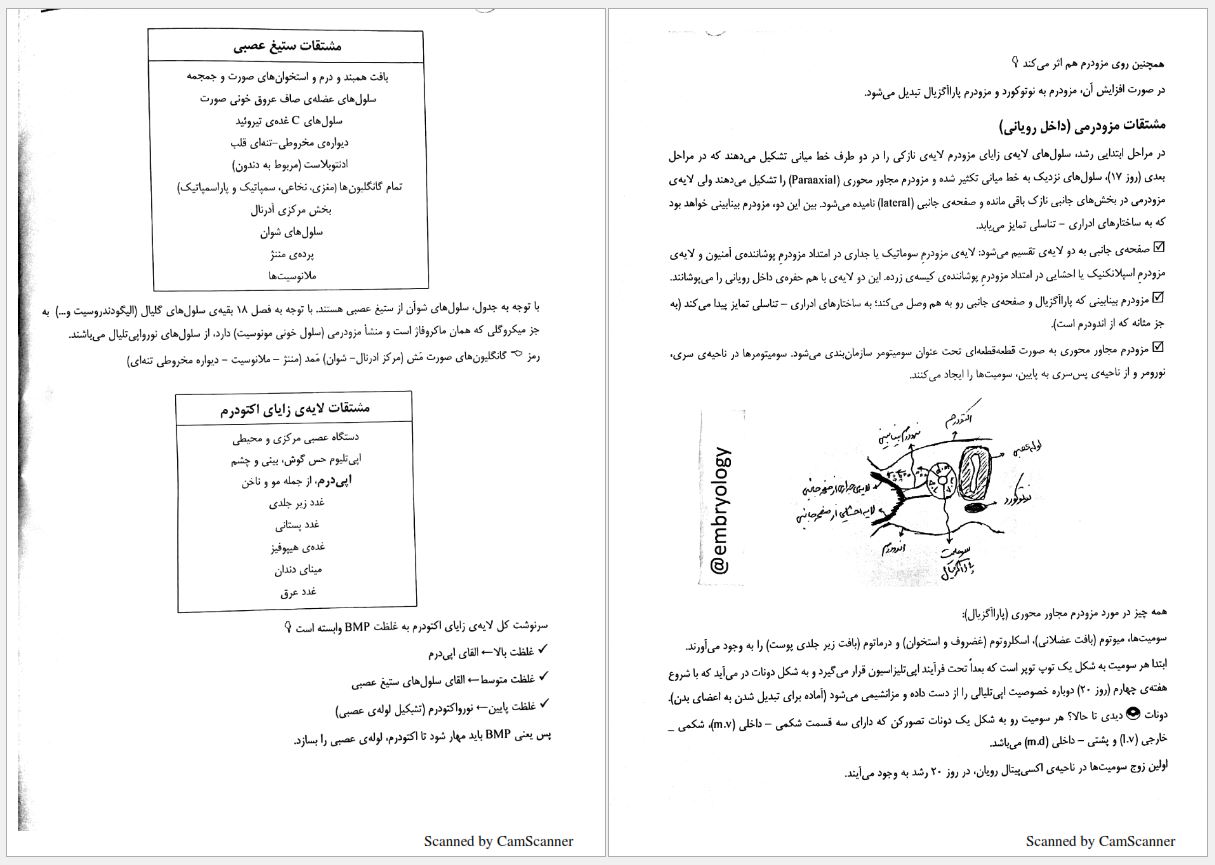 همچنین روی مزودرم هم اثر می‌کند
در صورت افزایش آن، مزودرم به نوتوکورد و مزودرم پاراآگزیال تبدیل می‌شود.
مشتقات مزودرمی (داخل رویانی)
در مراحل ابتدایی رشد، سلول‌های لایه‌ی زایای مزودرم لایه‌ی نازکی را در دو طرف خط میانی تشکیل می‌دهند که در مراحل
بعدی (روز ۱۷)، سلول‌های نزدیک به خط میانی تکثیر شده و مزودرم مجاور محوری (Paraaxial) را تشکیل می‌دهند ولی لایه‌ی
مزودرمی در بخش‌های جانبی نازک باقی مانده و صفحه‌ی جانبی (lateral) نامیده می‌شود. بین این دو، مزودرم بینابینی خواهد بود
که به ساختارهای ادراری – تناسلی تمایز می‌یابد.
☑ صفحه‌ی جانبی به دو لایه‌ی تقسیم می‌شود: لایه‌ی مزودرم سوماتیک یا جداری در امتداد مزودرم پوشاننده‌ی آمنیون و لایه‌ی
مزودرم اسپلانکنیک یا احشایی در امتداد مزودرم پوشاننده‌ی کیسه‌ی زرده. این دو لایه‌ی با هم حفره‌ی داخل رویانی را می‌پوشانند.
☑ مزودرم بینابینی که پاراآگزیال و صفحه‌ی جانبی رو به هم وصل می‌کند؛ به ساختارهای ادراری – تناسلی تمایز پیدا می‌کند (به
جز مثانه که از اندودرم است).
☑ مزودرم مجاور محوری به صورت قطعه‌قطعه‌ای تحت عنوان سومیتومر سازمان‌بندی می‌شود. سومیتومرها در ناحیه‌ی سری،
نورومر و از ناحیه‌ی پس‌سری به پایین، سومیت‌ها را ایجاد می‌کنند.
اکتودرم
مزودرم بینابینی
لوله عصبی
لایه‌ی جداری از صفحه جانبی
لایه احشایی از صفحه جانبی
نوتوکورد
اندودرم
سومیت
پاراآگزیال
@embryology
همه چیز در مورد مزودرم مجاور محوری (پاراآگزیال):
سومیت‌ها، میوتوم (بافت عضلانی)، اسکلروتوم (غضروف و استخوان) و درماتوم (بافت زیر جلدی پوست) را به وجود می‌آورند.
ابتدا هر سومیت به شکل یک توپ توپر است که بعداً تحت فرآیند اپی‌تلیزاسیون قرار می‌گیرد و به شکل دونات در می‌آید که با شروع
هفته‌ی چهارم (روز ۲۰) دوباره خصوصیت اپی‌تلیالی را از دست داده و مزانشیمی می‌شود (آماده برای تبدیل شدن به اعضای بدن).
دونات دیدی تا حالا؟ هر سومیت رو به شکل یک دونات تصورکن که دارای سه قسمت شکمی – داخلی (m.v)، شکمی _
خارجی (l.v) و پشتی – داخلی (m.d) می‌باشد.
اولین زوج سومیت‌ها در ناحیه‌ی اکسی‌پیتال رویان، در روز ۲۰ رشد به وجود می‌آیند.
Scanned by CamScanner
مشتقات ستیغ عصبی
بافت همبند و درم و استخوان‌های صورت و جمجمه
سلول‌های عضله‌ی صاف عروق خونی صورت
سلول‌های C غده‌ی تیروئید
دیواره‌ی مخروطی-تنه‌ای قلب
ادنتوبلاست (مربوط به دندون)
تمام گانگلیون‌ها (مغزی، نخاعی، سمپاتیک و پاراسمپاتیک)
بخش مرکزی آدرنال
سلول‌های شوان
پرده‌ی مننژ
ملانوسیت‌ها
با توجه به جدول، سلول‌های شوآن از ستیغ عصبی هستند. با توجه به فصل ۱۸ بقیه‌ی سلول‌های گلیال (الیگودندروسیت و...) به
جز میکروگلی که همان ماکروفاژ است و منشأ مزودرمی (سلول خونی مونوسیت) دارد، از سلول‌های نورواپی‌تلیال می‌باشند.
رمز گانگلیون‌های صورت مَش (مرکز ادرنال– شوان) مَمد (مننژ – ملانوسیت – دیواره مخروطی تنه‌ای)
مشتقات لایه‌ی زایای اکتودرم
دستگاه عصبی مرکزی و محیطی
اپی‌تلیوم حس گوش، بینی و چشم
اپی‌درم، از جمله مو و ناخن
غدد زیر جلدی
غدد پستانی
غده‌ی هیپوفیز
مینای دندان
غدد عرق
سرنوشت کل لایه‌ی زایای اکتودرم به غلظت BMP وابسته است
✓ غلظت بالا← القای اپی‌درم
✓ غلظت متوسط← القای سلول‌های ستیغ عصبی
✓ غلظت پایین← نورواکتودرم (تشکیل لوله‌ی عصبی)
پس یعنی BMP باید مهار شود تا اکتودرم، لوله‌ی عصبی را بسازد.
Scanned by CamScanner